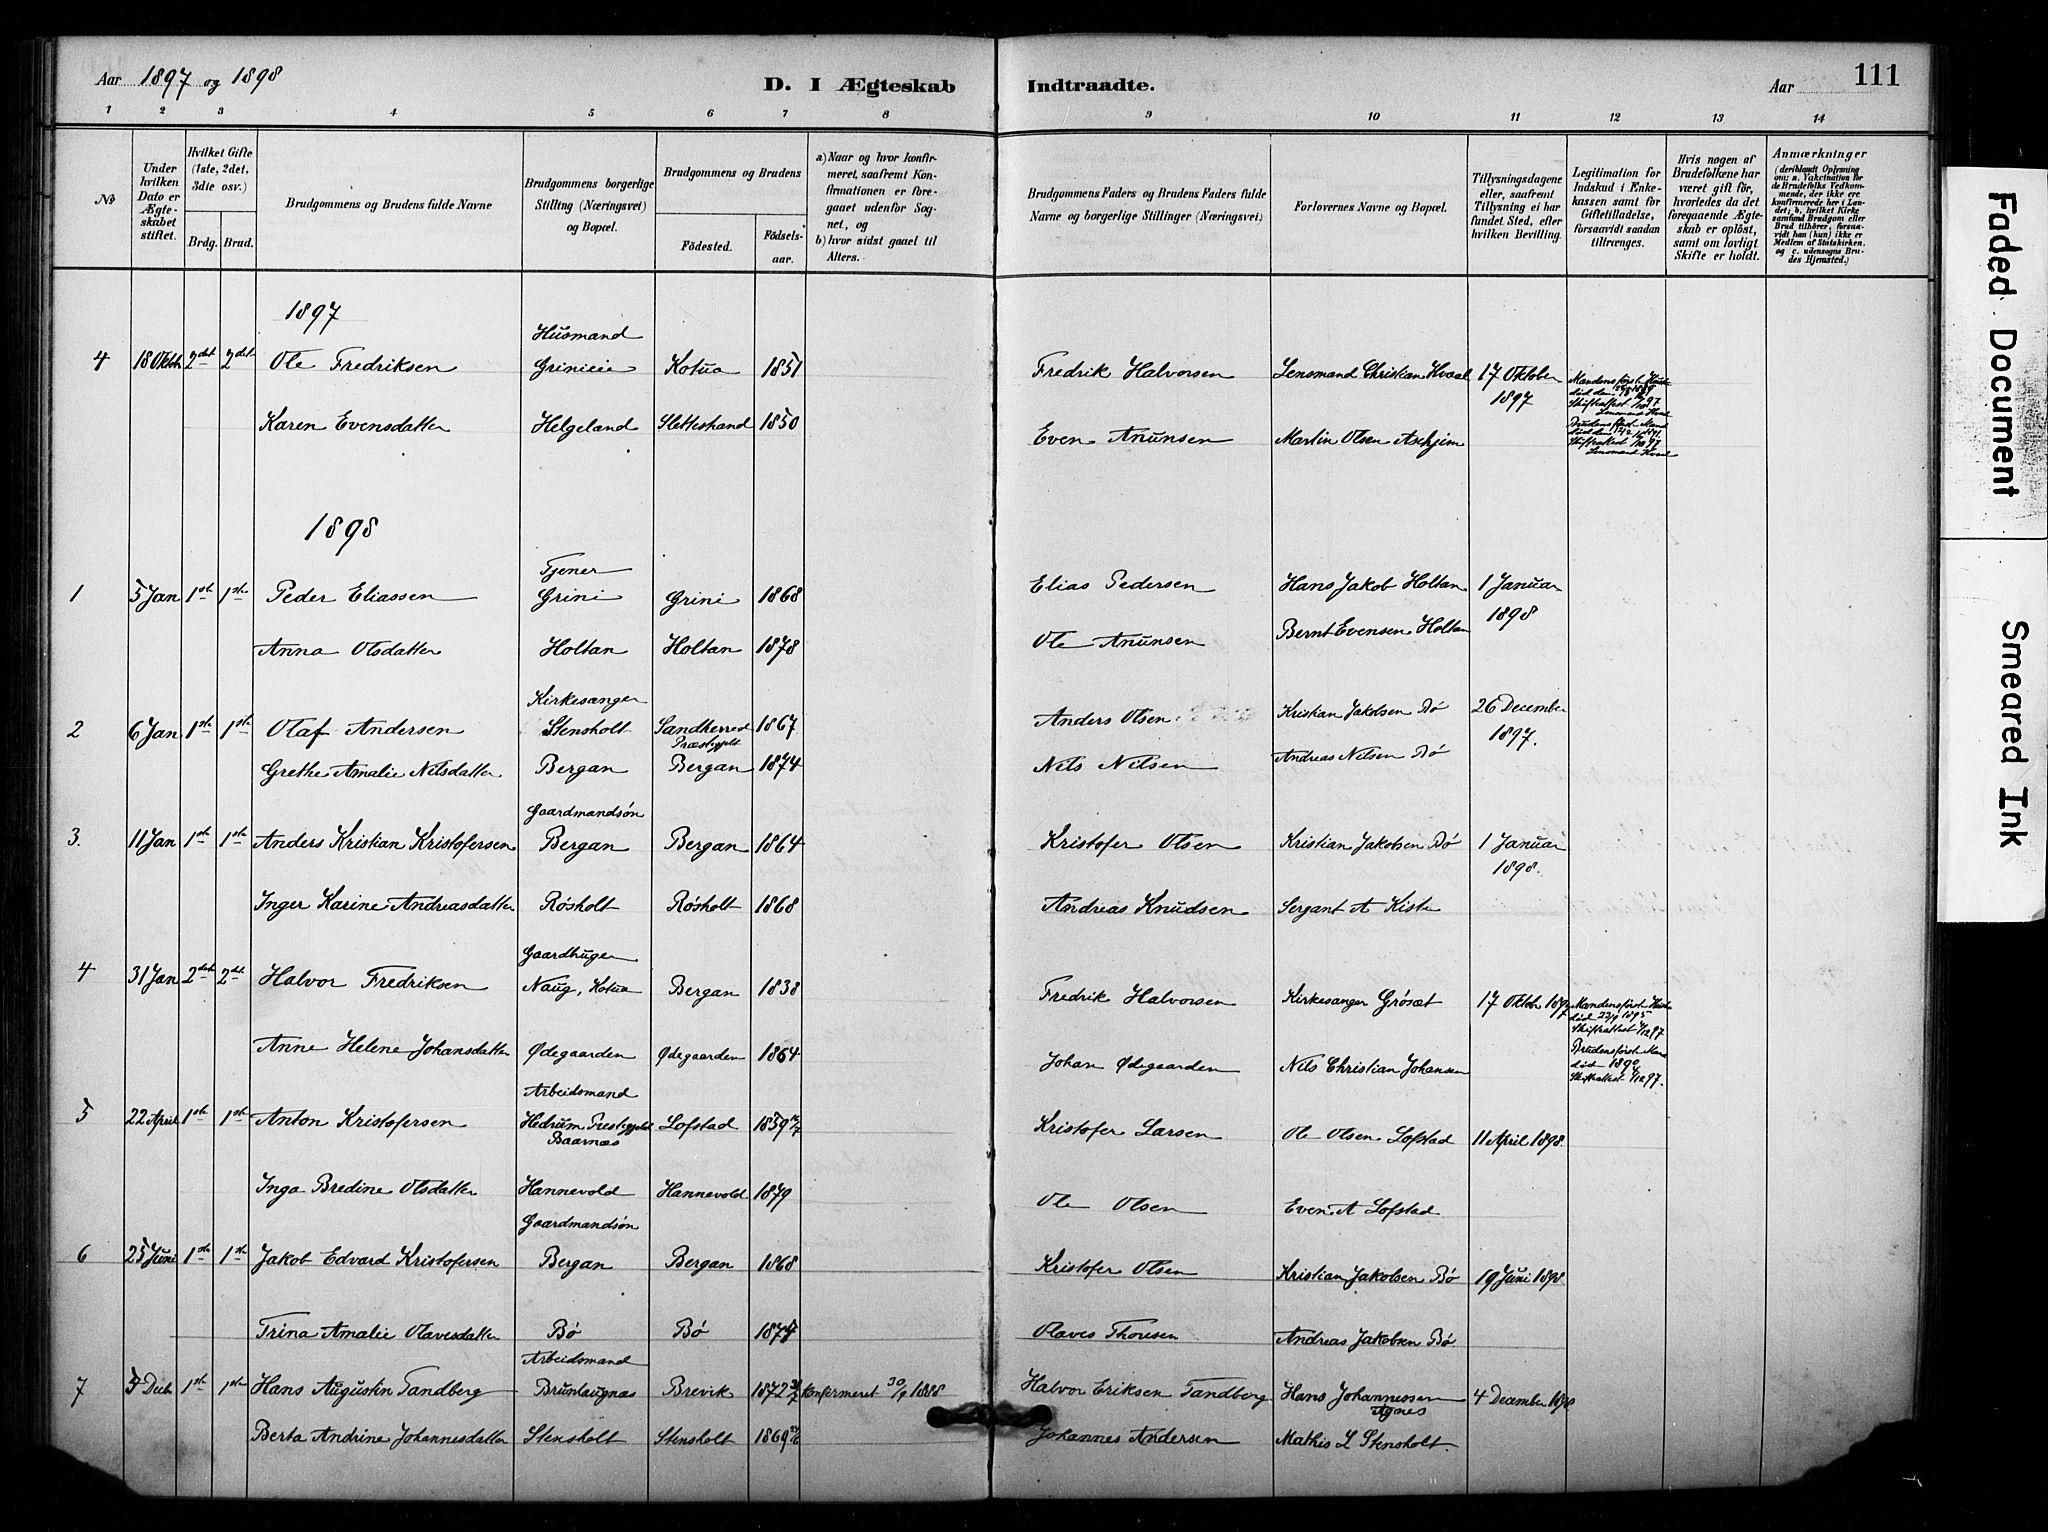 Aar 1897 og 1898
D. I Ægteskab Indtraadte.
Aar
111
1 2 3 4 5 6 7 8 9 10 11 12 13 14
No
Under hvilken Dato er Ægteskabet stiftet.
Hvilket Gifte (1ste, 2det, 3die osv.)
Brdg. Brud.
Brudgommens og Brudens fulde Navne
Brudgommens borgerlige Stilling (Næringsvei) og Bopæl.
Brudgommens og Brudens
Fødested.
Fødselsaar.
a) Naar og hvor konfirmeret, saafremt Konfirmationen er foregaaet udenfor Sognet, og
b) hvor sidst gaaet til Alters.
Brudgommens Faders og Brudens Faders fulde Navne og borgerlige Stillinger (Næringsvei)
Forlovernes Navne og Bopæl.
Tillysningsdagene eller, saafremt Tillysning ei har fundet Sted, efter hvilken Bevilling.
Legitimation for Indskud i Enkekassen samt for Giftetilladelse, forsaavidt saadan tiltrænges.
Hvis nogen af Brudefolkene har været gift før, hvorledes da det foregaaende Ægteskab er opløst, samt om lovligt Skifte er holdt.
Anmærkninger
(deriblandt Oplysning om: a. Vakcination for de Brudefolks Vedkommende, der ikke ere konfirmerede her i Landet; b, hvilket Kirkesamfund Brudgom eller Brud tilhører, forsaavidt han (hun) ikke er Medlem af Statskirken. og c. udensogns Brudes Hjemsted.)
1897
Husmand
4 18 Oktbr 2det 2det Ole Fredriksen Grinieie Kotua 1851 Fredrik Halvorsen Lensmand Christian Kvaal 17 Oktober 1897
Mandens först Hustru
Karen Evensdatter Helgeland Slettestrand 1850 Even Anunsen Martin Olsen Askjem
Brudens först Mand
Lensmand Kvaal
1898
Tjener
1 5 Jan 1ste 1ste Peder Eliassen Grini Grini 1868 Elias Pedersen Hans Jakob Holtan 1 Januar 1898
Anna Olsdatter Holtan Holtan 1878 Ole Anunsen Bernt Evensen Holtan
Kirkesanger
2 6 Jan 1ste 1ste Olaf Andersen Stensholt Sandherred Præstegjelt 1867 Anders Olsen Kristian Jakobsen Bö 26 December 1897.
Grethe Amalie Nilsdatter Bergan Bergan 1874 Nils Nilsen Andreas Nilsen Bö
Gaardmandsön
3. 11 Jan 1ste 1ste Anders Kristian Kristofersen Bergan Bergan 1864 Kristofer Olsen Kristian Jakobsen Bö 1 Januar 1898.
Inger Karine Andreasdatter Rösholt Rösholt 1868 Andreas Knudsen Sergant A Kiste
Gaardbruger
4 31 Jan 2det 2det Halvor Fredriksen Naug, Kotua Bergan 1838 Fredrik Halvorsen Kirkesanger Grösæt 17 Oktbr 1897
Mandens först Hustr
död 23/9 1895
Skifteattest 1/12 97
Anne Helene Johansdatter Ødegaarden Ødegaarden 1864 Johan Ødegaarden Nils Christian Johansen
Brudens först Man
död 1890
Skifteattest 1/12 97.
Arbeidsmand
5 22 April 1ste 1ste Anton Kristofersen Hedrum Prestegjeld Baarnæs Lofstad 1859 Kristofer Larsen Ole Olsen Lofstad 11 April 1898.
Inga Bredine Olsdatter Hannevold Hannevold 1879 Ole Olsen Even A Lofstad
Gaardmandsön
6 25 Juni 1ste 1ste Jakob Edvard Kristofersen Bergan Bergan 1868 Kristofer Olsen Kristian Jakobsen Bö 19 Juni 1898
Trina Amalie Olavesdatter Bö Bö 1874 Olaves Thovsen Andreas Jakobsen Bö
Arbeidsmand
7 Decbr 1ste 1ste Hans Augustin Tandberg Brunlaugnæs Brevik 1872 Konfirmeret 30/9 1888 Halvor Eriksen Tandberg Hans Johannessen Agnes 4 December 1898
Berta Andrine Johannesdatter Stensholt Stensholt 1869 Johannes Andersen Mathis L Stensholt.
Faded Document
Smeared Ink